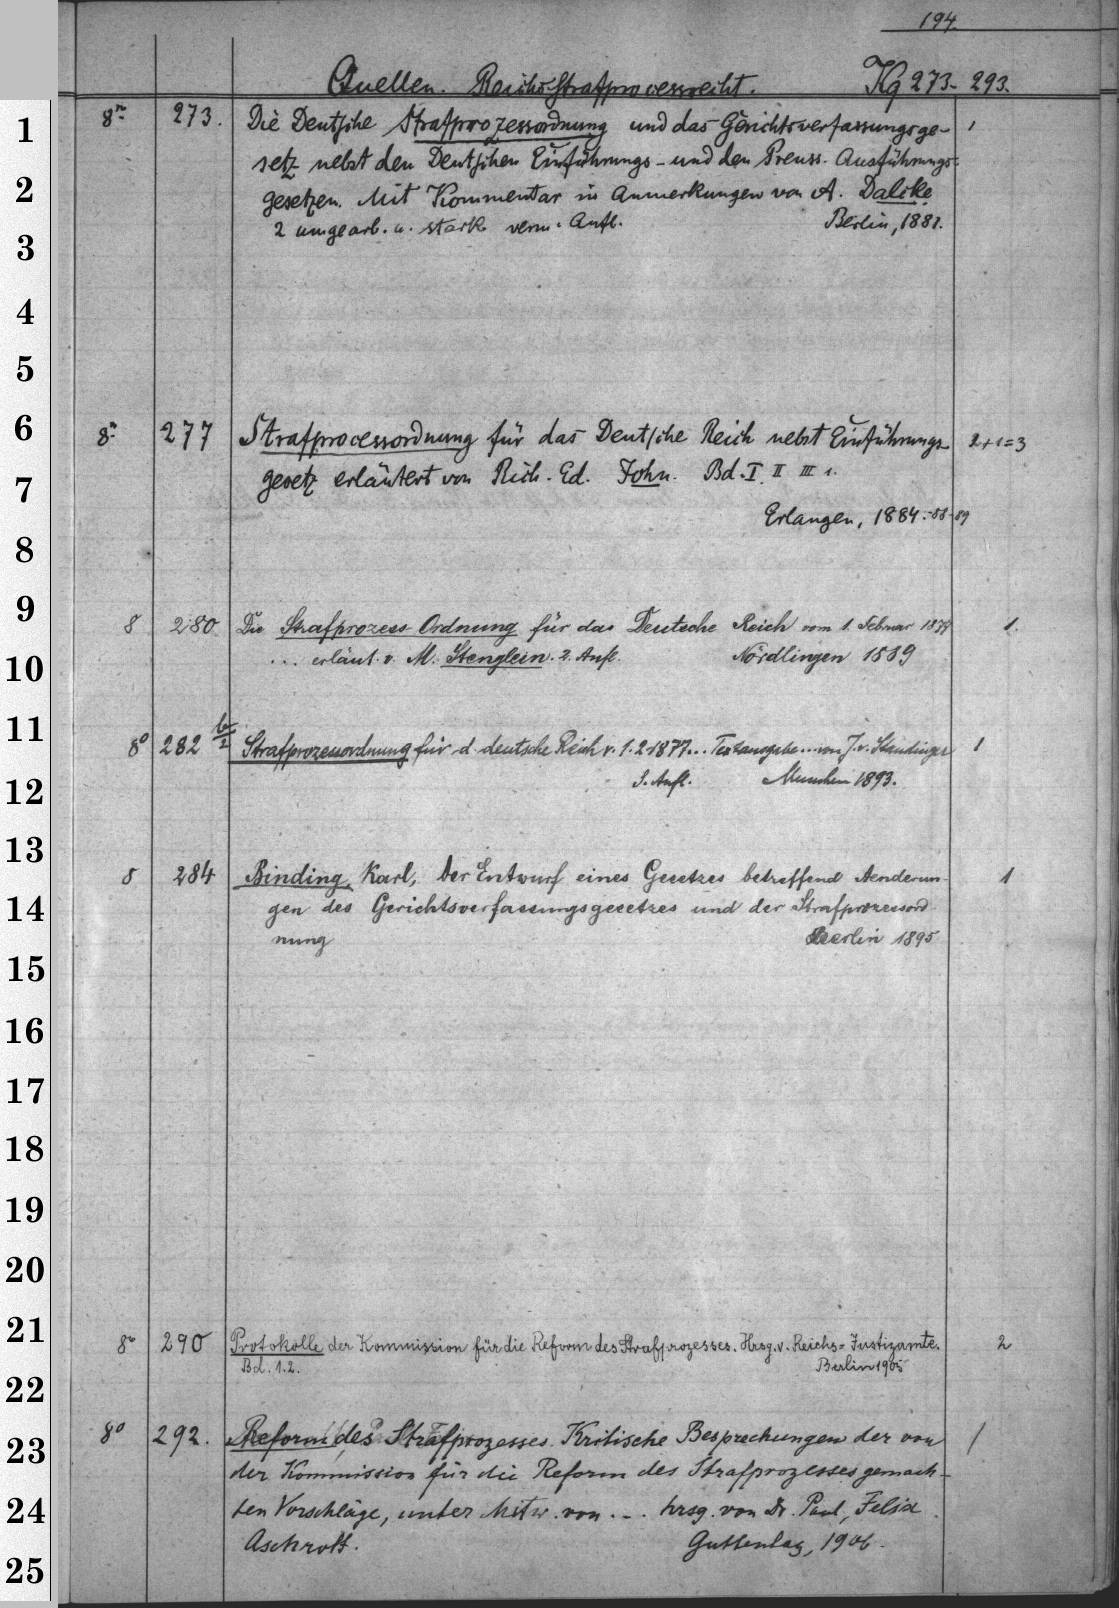 194.
Quellen. Reichsstrafprocessrecht. Kq 273-293.
1
2
3
4
5
6
7
8
9
10
11
12
13
14
15
16
17
18
19
20
21
22
23
24
25
8º 273. Die Deutsche Strafprozessordnung und das Gerichtsverfassungsge- 1
setz nebst den Deutschen Einführungs- und den Preuss. Ausführungs-
gesetzen. Mit Kommentar in Anmerkungen von A. Dalcke
2 umgearb. u. stark verm. Aufl. Berlin, 1881.
8º 277 Strafprocessordnung für das Deutsche Reich nebst Einführungs- 2+1=3
gesetz erläutert von Rich. Ed. John. Bd. I. II III 1.
Erlangen, 1884.-88-89
8 280 Die Strafprozess-Ordnung für das Deutsche Reich vom 1. Februar 1879 1.
... erläut. v. M. Stenglein. 2. Aufl. Nördlingen 1889
8º 282 Strafprozessordnung für d. deutsche Reich v. 1.2.1877... Textausgabe... von J. v. Staudinger 1
3. Aufl. Munchen 1893.
8 284 Binding, Karl, Der Entwurf eines Gesetzes betreffend Aenderun- 1
gen des Gerichtsverfassungsgesetzes und der Strafprozessord
nung Berlin 1895
8º 290 Protokolle der Kommission für die Reform des Strafprozesses. Hrsg. v. Reichs-Justizamte. 2
Bd. 1.2. Berlin 1905
8º 292. Reform des Strafprozesses. Kritische Besprechungen der von 1
der Kommission für die Reform des Strafprozesses gemach-
ten Vorschläge, unter Mitw. von ... hrsg. von Dr. Paul, Felix
Aschrott. Guttentag, 1906.